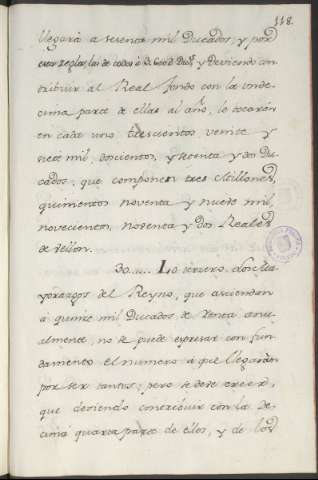 118.
llegará a sesenta mil Ducados, y por
y deviendo con
tribuir al Real fondo con la unde-
cima parte de ellas al año, le tocarán
en cada uno trescientos veinte y
siete mil, doscientos, y setenta y dos Du-
cados, que componen tres Millones,
quinientos noventa y nueve mil
novecientos, noventa y dos Reales
de vellon.
30..... Lo tercero. Los Ma-
yorazgos del Reyno, que asciendan
a quince mil Ducados de renta anu-
almente, no se puede expresar con fun-
damento el numero a que llegarán
por ser tantos; pero se debe creer,
que deviendo contribuir con la De-
cima quarta parte de ellos, y de los